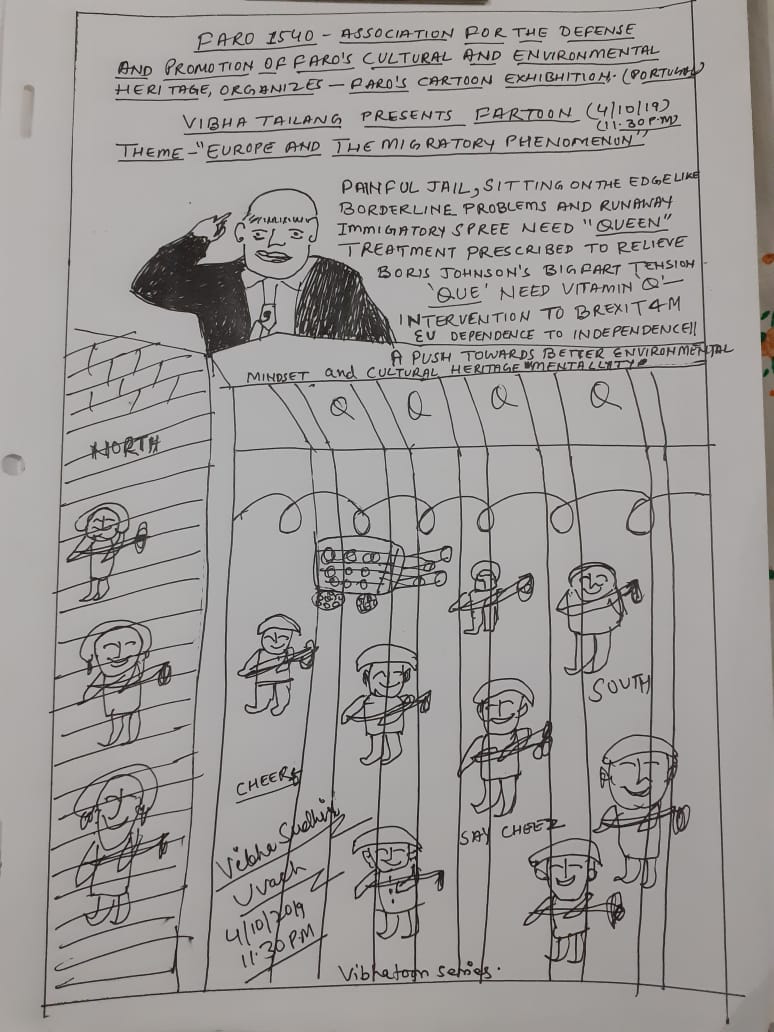 FARO 1540 - ASSOCIATION FOR THE DEFENSE
AND PROMOTION OF FARO'S CULTURAL AND ENVIRONMENTAL
HERITAGE, ORGANIZES - FARO'S CARTOON EXHIBHITION. (PORTUGAL)
VIBHA TAILANG PRESENTS FARTOON (4/10/19)
(11.30 P.M)
THEME - "EUROPE AND THE MIGRATORY PHENOMENON"
PAINFUL JAIL, SITTING ON THE EDGE LIKE
BORDERLINE PROBLEMS AND RUNAWAY
IMMIGATORY SPREE NEED "QUEEN"
TREATMENT PRESCRIBED TO RELIEVE
BORIS JOHNSON'S BIG PART TENSION
'QUE' NEED VITAMIN 'Q' -
INTERVENTION TO BREXIT 4M
EU DEPENDENCE TO INDEPENDENCE!!
A PUSH TOWARDS BETTER ENVIRONMENTAL
MINDSET and CULTURAL HERITAGE MENTALLITY
Q Q Q Q
NORTH
SOUTH
CHEERS
SAY CHEEZ
Vibha Sudhir
Uvach
4/10/2019
11.30 P.M
Vibhatoon series.